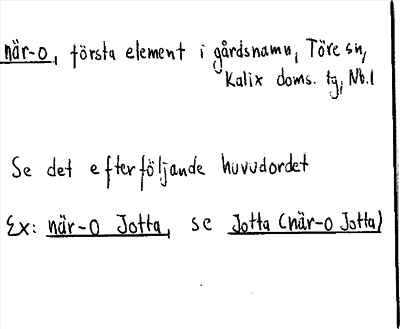 när-o, första element i gårdsnamn, Töre sn,
Kalix doms. tg, Nb.l
Se det efterföljande huvudordet
Ex: när-o Jotta, se Jotta (när-o Jotta)